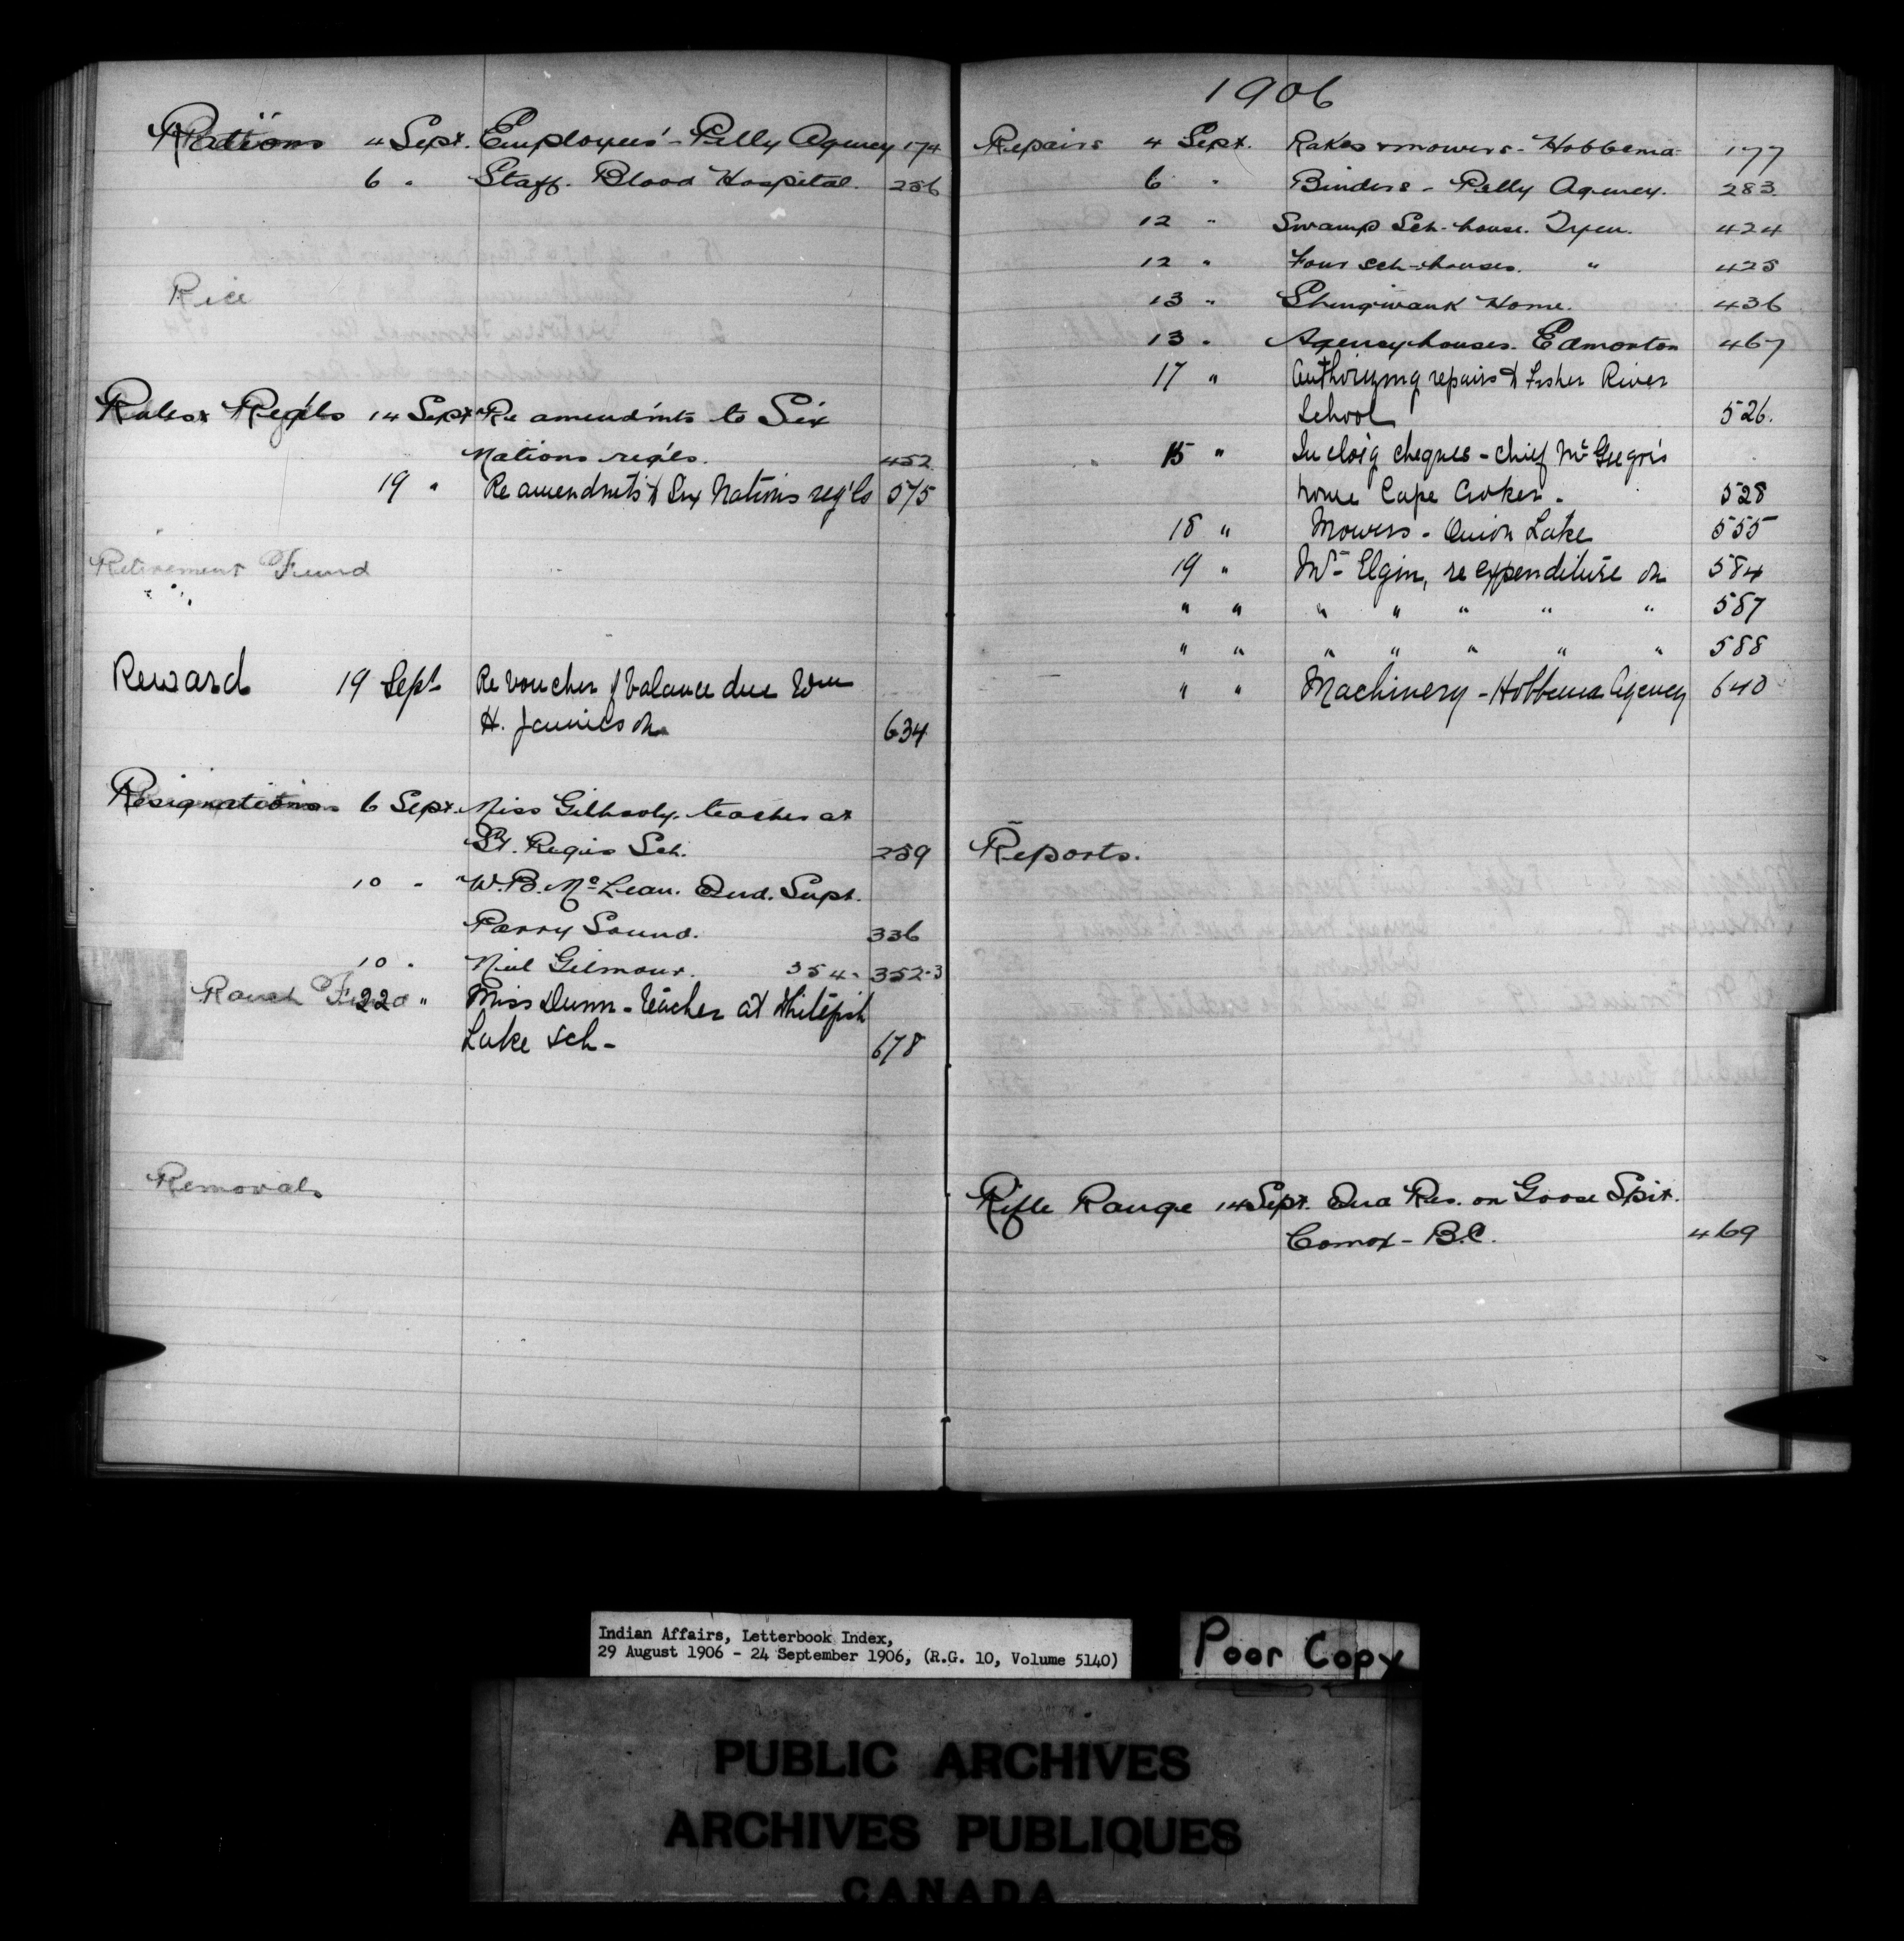 Rations 4 Sept. Employees' - Pelly Agency 174
6 " Staff. Blood Hospital. 256
Rice
Rules & Reg'ls 14 Sept Re amendm'ts to Six
Nations reg'ls. 452
19 " Re amendm'ts to Six Nations reg'ls 575
Retirement Fund
Reward 19 Sept Re voucher of balance due Wm
H. Jamieson 634
Resignations 6 Sept. Miss Gilhooly. teacher at
St. Regis Sch. 259
10 " W.B. McLean. Ind. Supt.
Parry Sound. 336
10 " Neil Gilmour. 354- 352-3
Ranch Fund 20 " Miss Dunn - teacher at Whitefish
Lake sch - 678
Removals
1906
Repairs 4 Sept. Rakes & mowers - Hobbema 177
6 " Binders - Pelly Agency. 283
12 " Swamp Sch-house. Tyen. 424
12 " Four sch-houses. " 425
13 " Shingwauk Home. 436
13 " Agency houses. Edmonton 467
17 " Authorizing repairs to Fisher River
School 526.
15 " Inclos'g cheques - Chief McGregor's
house Cape Croker - 528
18 " Mowers - Onion Lake 555
19 " Mt Elgin, re expenditure on 584
" " " " " " " 587
" " " " " " " 588
" " Machinery - Hobbema Agency 640
Reports.
Rifle Range 14 Sept. Ind Res. on Goose Spit.
Comox - B.C. 469
Indian Affairs, Letterbook Index,
29 August 1906 - 24 September 1906, (R.G. 10, Volume 5140)
Poor Copy
PUBLIC ARCHIVES
ARCHIVES PUBLIQUES
CANADA